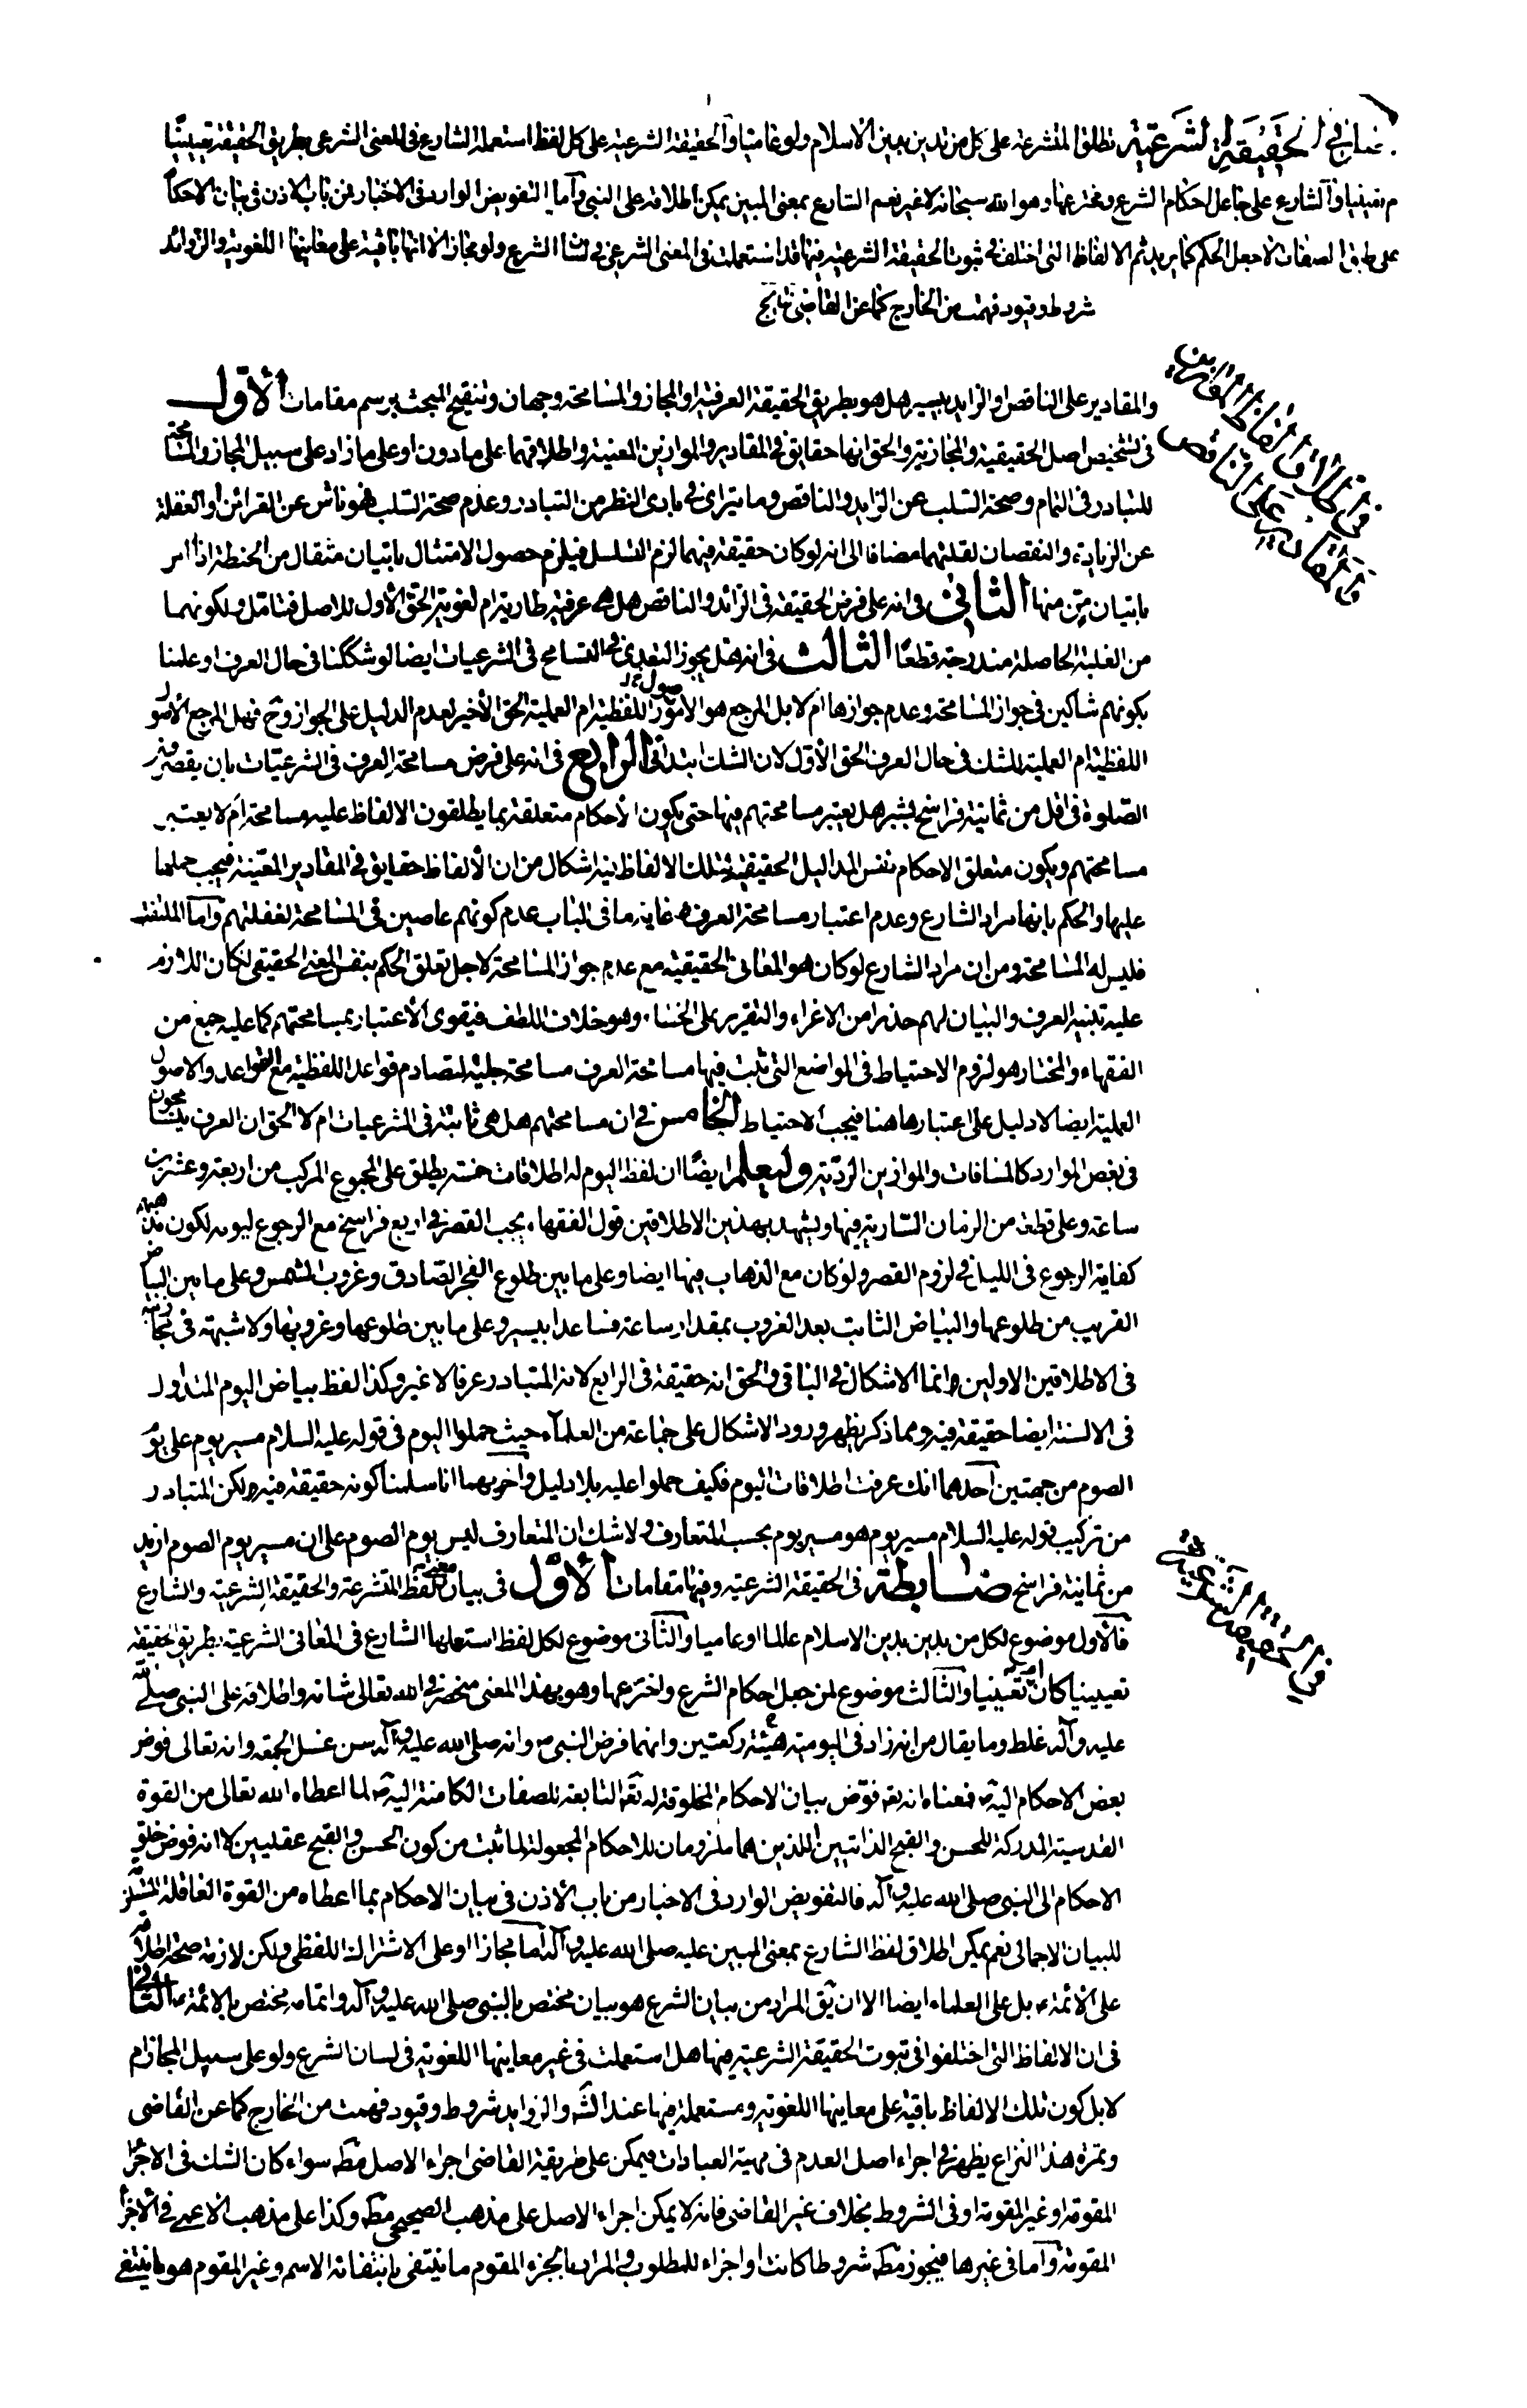 نتايج في الحقيقة الشرعية تطلق المتشرعة على كل من تدين بدين الاسلام ولو عاميا والحقيقة الشرعية على كل لفظ استعمله الشارع في المعنى الشرعي بطريق الحقيقة تعيينيا
ام تعينيا والشارع على جاعل احكام الشرع ومخترعها وهو الله سبحانه لا غير نعم الشارع بمعنى المبين يمكن اطلاقه على النبي واما التفويض الوارد في الاخبار فمن باب الاذن في بيان الاحكام
على طبق الصفات لا جعل الحكم كما يريد ثم الالفاظ التي اختلف في ثبوت الحقيقة الشرعية فيها قد استعملت في المعنى الشرعي في لسان الشرع ولو مجازا لا انها باقية على معانيها اللغوية والزوائد
شروط وقيود فهمت من الخارج كما عن القاضي نتايج
في اطلاق الفاظ الموازين
والمقادير على الناقص
والمقادير على الناقص والزايد بيسير هل هو بطريق الحقيقة العرفية او المجاز والمسامحة وجهان وتنقيح المبحث برسم مقامات الأول
في تشخيص اصل الحقيقية والمجازية والحق انها حقايق في المقادير والموازين المعينة واطلاقهما على مادون او على مازاد على سبيل المجاز والمسامحة
للتبادر في التمام وصحة السلب عن الزايد والناقص وما يترائ في بادى النظر من التبادر وعدم صحة السلب فهو ناش عن القرائن او الغفلة
عن الزيادة والنقصان لقلتهما مضافا الى انه لو كان حقيقة فيهما لزم التسلسل فيلزم حصول الامتثال باتيان مثقال من الحنطة اذا امر
باتيان من منها الثاني في انه على فرض الحقيقة في الزائد والناقص هل هى عرفية طارية ام لغوية الحق الأول للاصل فتامل ولكونهما
من الغلبة الحاصلة مندرجة قطعا الثالث في انه هل يجوز التعدى في التسامح في الشرعيات ايضا لو شككنا في حال العرف او علمنا
بكونهم شاكين في جواز المسامحة وعدم جوازها ام لا بل المرجع هو الاصول اللفظية ام العملية الحق الأخير لعدم الدليل على الجواز وح فهل المرجع الأصول
اللفظية ام العملية للشك في حال العرف الحق الأول لان الشك ابتدائى الرابع في انه على فرض مسامحة العرف في الشرعيات بان يقصر
الصلوة في اقل من ثمانية فراسخ بشبر هل يعتبر مسامحتهم فيها حتى يكون الأحكام متعلقة بما يطلقون الالفاظ عليه مسامحة ام لا يعتبر
مسامحتهم ويكون متعلق الاحكام نفس المداليل الحقيقية لتلك الالفاظ فيه اشكال من ان الألفاظ حقايق في المقادير المعينة فيجب حملها
عليها والحكم بانها مراد الشارع وعدم اعتبار مسامحة العرف غاية ما في الباب عدم كونهم عاصين في المسامحة لغفلتهم واما الملتفت
فليس له المسامحة ومن ان مراد الشارع لو كان هو المعاني الحقيقية مع عدم جواز المسامحة لاجل تعلق الحكم بنفس المعنى الحقيقي لكان اللازم
عليه تنبيه العرف والبيان لهم حذرا من الاغراء والتقرير على الخطاء وهو خلاف اللطف فيقوى الأعتبار بمسامحتهم كما عليه جمع من
الفقهاء والمختار هو لزوم الاحتياط في المواضع التي ثبت فيها مسامحة العرف مسامحة جلية لتصادم قواعد اللفظية مع القواعد والاصول
العملية ايضا لا دليل على اعتبارها هنا فيجب الاحتياط الخامس في ان مسامحتهم هل هي ثابتة في الشرعيات ام لا الحق ان العرف يتسامحون
في بعض الموارد كالمسافات والموازين الردية وليعلم ايضا ان لفظ اليوم له اطلاقات خمسة يطلق على المجموع المركب من اربعة وعشرين
ساعة وعلى قطعة من الزمان السارية فيها ويشهد بهذين الاطلاقين قول الفقهاء يجب القصر في اربع فراسخ مع الرجوع ليومه لكون مذهبهم
كفاية الرجوع في الليل في لزوم القصر ولو كان مع الذهاب فيها ايضا وعلى ما بين طلوع الفجر الصادق وغروب الشمس وعلى ما بين البياض
القريب من طلوعها والبياض الثابت بعد الغروب بمقدار ساعة فصاعدا بيسير وعلى ما بين طلوعها وغروبها ولا شبهة في مجازيته
في الاطلاقين الاولين وانما الاشكال في الباقي والحق انه حقيقة في الرابع لانه المتبادر عرفا لا غير وكذا لفظ بياض اليوم المتداول
في الالسنة ايضا حقيقة فيه ومما ذكر يظهر ورود الاشكال على جماعة من العلماء حيث حملوا اليوم في قوله عليه السلام مسير يوم على يوم
الصوم من جهتين احدهما انك عرفت اطلاقات اليوم فكيف حملوا عليه بلا دليل واخريهما انا سلمنا كونه حقيقة فيه ولكن المتبادر
من تركيب قوله عليه السلام مسير يوم هو مسير يوم بحسب المتعارف ولا شك ان المتعارف ليس يوم الصوم على ان مسير يوم الصوم ازيد
من ثمانية فراسخ ضابطة في الحقيقة الشرعية وفيها مقامات الأول في بيان معنى لفظ المتشرعة والحقيقة الشرعية والشارع
في الحقيقة الشرعية
فالأول موضوع لكل من يدين بدين الاسلام عالما او عاميا والثاني موضوع لكل لفظ استعملها الشارع في المعاني الشرعية بطريق الحقيقة
تعيينيا كان ام تعينيا والثالث موضوع لمن جعل احكام الشرع واخترعها وهو بهذا المعنى منحصر في الله تعالى شانه واطلاقه على النبي صلى الله
عليه وآله غلط وما يقال من انه زاد في اليومية هيئة ركعتين وانهما فرض النبي ص وانه صلى الله عليه وآله سن غسل الجمعه وانه تعالى فوض
بعض الاحكام اليه ص فمعناه انه تع فوض بيان الاحكام المخلوقة له تع التابعة للصفات الكامنة اليه ص لما اعطاه الله تعالى من القوة
القدسية المدركة للحسن والقبح الذاتيين اللذين هما ملزومان للاحكام المجعولة لما ثبت من كون الحسن والقبح عقليين لا انه فوض خلق
الاحكام الى النبي صلى الله عليه وآله فالتفويض الوارد في الاخبار من باب الأذن في بيان الاحكام بما اعطاه من القوة العاقلة
للبيان الاجمالى نعم يمكن اطلاق لفظ الشارع بمعنى المبين عليه صلى الله عليه وآله اما مجازا او على الاشتراك اللفظي ولكن لازمه صحة اطلاقه
على الأئمة ع بل على العلماء ايضا الا ان يق المراد من بيان الشرع هو بيان مختص بالنبى صلى الله عليه وآله واتمامه مختص بالائمة ع الثاني
في ان الالفاظ التي اختلفوا في ثبوت الحقيقة الشرعية فيها هل استعملت في غير معاينها اللغوية في لسان الشرع ولو على سبيل المجاز ام
لا بل كون تلك الالفاظ باقية على معاينها اللغوية ومستعملة فيها عند الش والزوايد شروط وقيود فهمت من الخارج كما عن القاضى
وثمرة هذا النزاع يظهر في اجراء اصل العدم في مهية العبادات فيمكن على طريقة القاضى اجراء الاصل مطه سواء كان الشك في الاجزاء
المقومة او غير المقومة او في الشروط بخلاف غير القاضى فانه لا يمكن اجراء الاصل على مذهب الصحيحى مطه وكذا على مذهب الاعمى في الأجزاء
المقومة واما في غيرها فيجوز مطه شروطا كانت او اجزاء للمطلوب والمراد بالجزء المقوم ما ينتفى بانتفائه الاسم وغير المقوم هو ما ينتفى